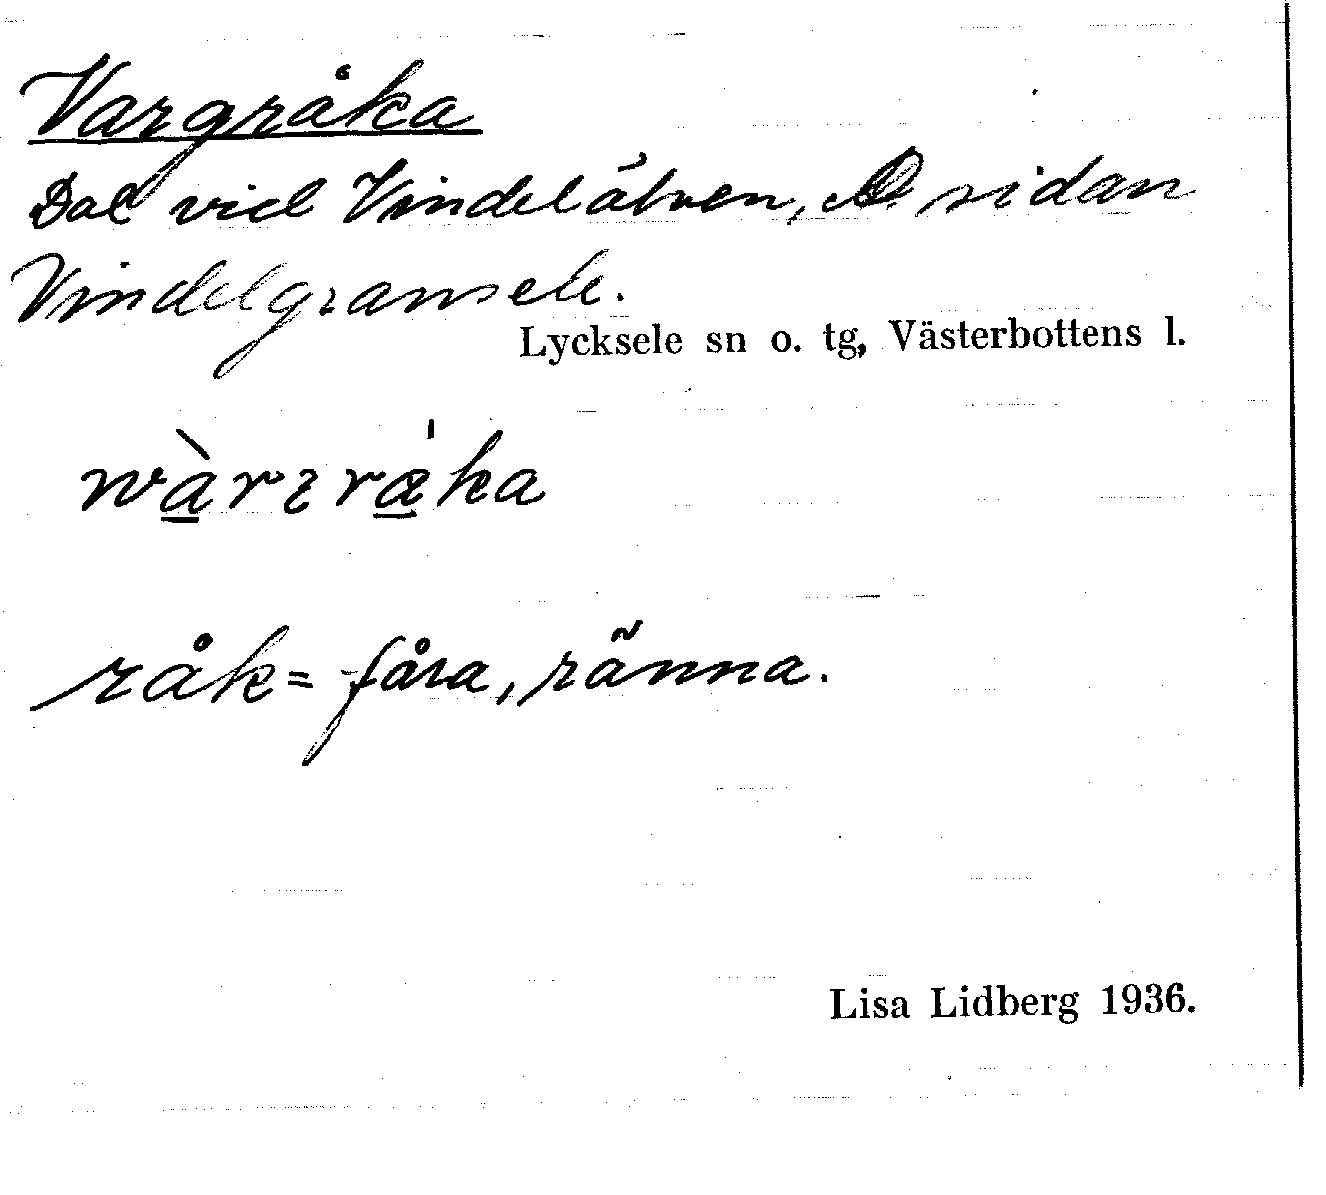 Vargråka
Dal vid Vindelälven, Ö. sidan
Vindelgransele.
Lycksele sn o. tg, Västerbottens l.
råk = fåra, ränna.
Lisa Lidberg 1936.